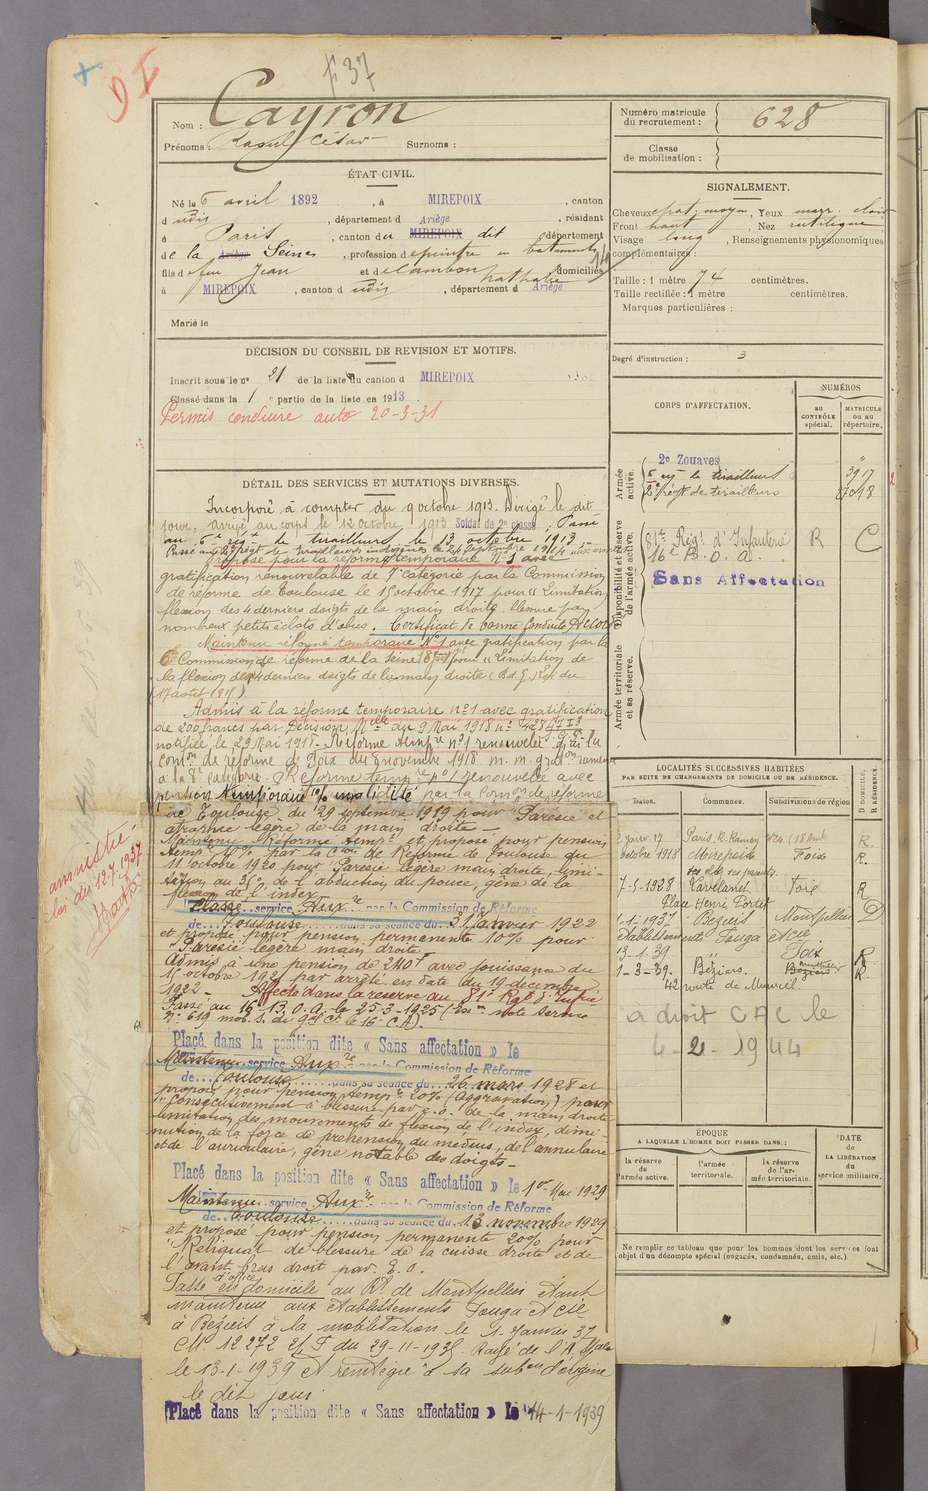 D I
F 37
Nom : Cayron
Prénoms : Raoul César Surnoms :
ÉTAT CIVIL.
Né le 6 avril 1892, à MIREPOIX, canton
d udis, département d Ariège, résidant
à Paris, canton du MIREPOIX dit, département
de la Ariège Seine, profession d peintre en batiments
fils de feu Jean et de Cambon Nathalie domiciliés
à MIREPOIX, canton d udis, département d Ariège
Marié le
14
DÉCISION DU CONSEIL DE REVISION ET MOTIFS.
Inscrit sous le nº 21 de la liste du canton d MIREPOIX
Classé dans la 1 e partie de la liste en 1913
Permis conduire auto 20-3-31
DÉTAIL DES SERVICES ET MUTATIONS DIVERSES.
Incorporé à compter du 9 octobre 1913. Dirigé le dit
jour, arrivé au corps le 12 octobre 1913 Soldat de 2e classe; Passé
au 6e régt de tirailleurs le 13 octobre 1913.
Passé au 2e régt de tirailleurs indigènes le 24 septembre 1914
Proposé pour la réforme temporaire Nº 1 avec
gratification renouvelable de 7e catégorie par la Commission
de réforme de Toulouse le 15 octobre 1917 pour "Limitation
flexion des 4 derniers doigts de la main droite
nombreux petits éclats d'obus. Certificat de bonne conduite Accordé
Maintenu réformé temporaire Nº 1 avec gratification par la
Commission de réforme de la Seine pour "Limitation de
la flexion des 4 derniers doigts de la main droite
17 août 1917)
Admis à la réforme temporaire nº 1 avec gratification
de 200 francs par Décision Mlle du 9 Mai 1918 nº
notifiée le 29 Mai 1918. Réforme tempre nº 1 renouvelée par la
comon de réforme de Foix du novembre 1918 m. m. graton
à la 8e catégorie. Réforme tempre nº 1 renouvelé avec
pension temporaire 10% invalidité par la Comon de réforme
de Toulouse du 29 septembre 1919 pour "Parésie et
atrophie légère de la main droite -
Maintenu Réforme tempre et proposé pour pension
tempre 10% par la Con de Réforme de Toulouse du
11 octobre 1920 pour "Parésie légère main droite, limi-
tation au 3/5 de l'abduction du pouce, gêne de la
flexion de l'index
Classé service Auxre par la Commission de Réforme
de Toulouse dans sa séance du 31 janvier 1922
et proposé pour pension permanente 10% pour
"Parésie légère main droite"
Admis à une pension de 240f avec jouissance du
15 octobre 1921 par arrêté en date du 19 décembre
1922 - Affecté dans la réserve au 81e Rgt d'Infie
Passé au 16e B.O.A. le 25-3-1925 (Don note service
nº 619 mob. S. du Gal Ct le 16e C.A.)
Placé dans la position dite « Sans affectation » le
Maintenu service Auxre par la Commission de Réforme
de Toulouse dans sa séance du 26 mars 1928 et
proposé pour pension tempre 20% (aggravation) pour
"Consécutivement à blessure par é.o. de la main droite
limitation des mouvements de flexion de l'index, dimi-
nution de la force de préhension du médius, de l'annulaire
et de l'auriculaire, gêne notable des doigts -
Placé dans la position dite « Sans affectation » le 1er Mai 1929
Maintenu service Auxre par la Commission de Réforme
de Toulouse dans sa séance du 13 novembre 1929
et proposé pour pension permanente 20% pour
"Reliquat de blessure de la cuisse droite et de
l'avant bras droit par E.O.
Passé d'office en domicile au Rt de Montpellier étant
maintenu aux établissements Fouga et Cie
à Béziers à la mobilisation le 1- Janvier 37
CM. 12272 du 29-11-193 . Rayé de l'A. Spale
le 13-1-1939 et réintégré à sa subon d'origine
le dit jour
Placé dans la position dite « Sans affectation » Le 14-1-1939
amnistié
loi du 12.7.1937
Numéro matricule
du recrutement : 628
Classe
de mobilisation :
SIGNALEMENT.
Cheveux chat. moyen, Yeux marr. clair
Front haut, Nez rectiligne
Visage long, Renseignements physionomiques
complémentaires :
Taille : 1 mètre 74 centimètres.
Taille rectifiée : 1 mètre centimètres.
Marques particulières :
Degré d'instruction : 3
CORPS D'AFFECTATION.
NUMÉROS
au
CONTRÔLE
spécial.
MATRICULE
ou au
répertoire.
Armée
active.
2e Zouaves "
6e régt de tirailleurs 3917
2e régt de tirailleurs
Disponibilité et réserve
de l'armée active.
81e Régt d'Infanterie R C
16e B.O.A.
Sans Affectation
Armée territoriale
et sa réserve.
LOCALITÉS SUCCESSIVES HABITÉES
PAR SUITE DE CHANGEMENTS DE DOMICILE OU DE RÉSIDENCE.
Dates. Communes. Subdivisions de région
D DOMICILE.
R RÉSIDENCE.
Paris R. Ramey Nº 24 (18e Ardt R.
octobre 1918 Mirepoix Foix R.
chez ses parents
7-5-1928 Lavelanet Foix R
Place Henri
1-1-1937 Béziers Montpellier D
établissements Fouga et Cie
13-1-39 " Foix R
1-3-39. Béziers. Béziers R.
42 route de
a droit CAC le
4-2-1944
ÉPOQUE
A LAQUELLE L'HOMME DOIT PASSER DANS :
la réserve
de
l'armée active.
l'armée
territoriale.
la réserve
de l'ar-
mée territoriale.
DATE
de
LA LIBÉRATION
du
service militaire.
Ne remplir ce tableau que pour les hommes dont les services font
objet d'un décompte spécial (engagés, condamnés, omis, etc.).